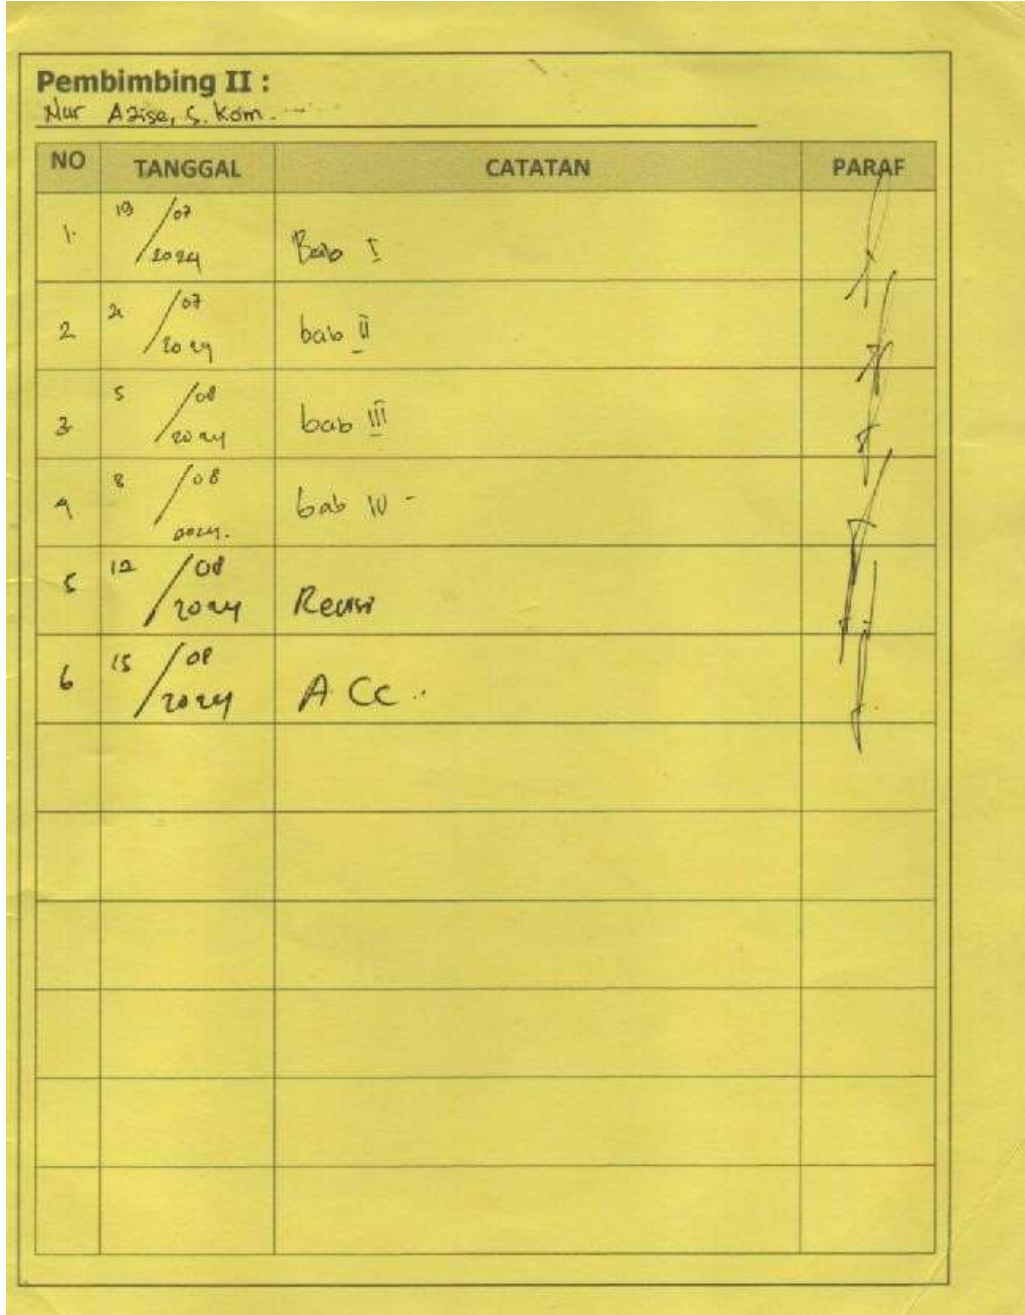 Pembimbing II :
Nur Azise, S. Kom.
NO TANGGAL CATATAN PARAF
1. 19/07/2024 Bab I
2 /07/2024 bab II
3 5/08/2024 bab III
4 8/08/2024. bab IV -
5 12/08/2024 Revisi
6 15/08/2024 A CC ..